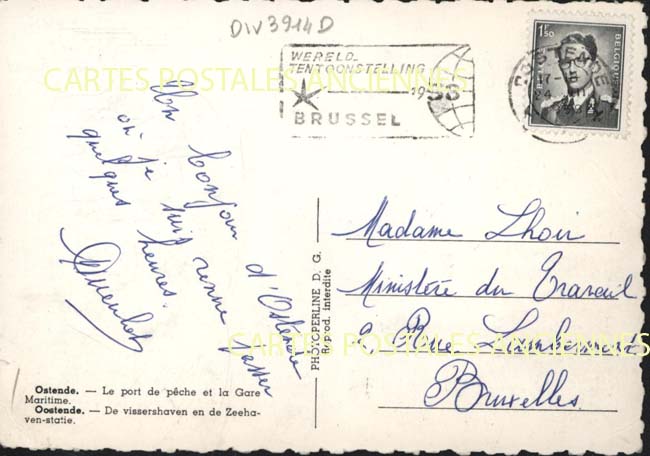 DIV3914D
WERELD-
TENTOONSTELLING
1958
BRUSSEL
OOSTENDE
1F50
BELGIQUE
CARTES POSTALES ANCIENNES
Un bonjour d'Ostende
où je suis venue passer
quelques heures.
Madame Lhoir
Ministère du Travail
2 Rue Lambermont
Bruxelles
PHOTOPERLINE D. G.
Reprod. interdite
CARTES POSTALES ANCIENNES
Ostende. — Le port de pêche et la Gare
Maritime.
Oostende. — De vissershaven en de Zeeha-
ven-statie.